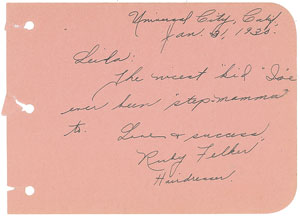 Universal City, Calif.
Jan. 31, 1935.
Leila:
The nicest "kid" I've
ever been "step-mamma"
to. Love & success,
Ruby Felker
Hairdresser.